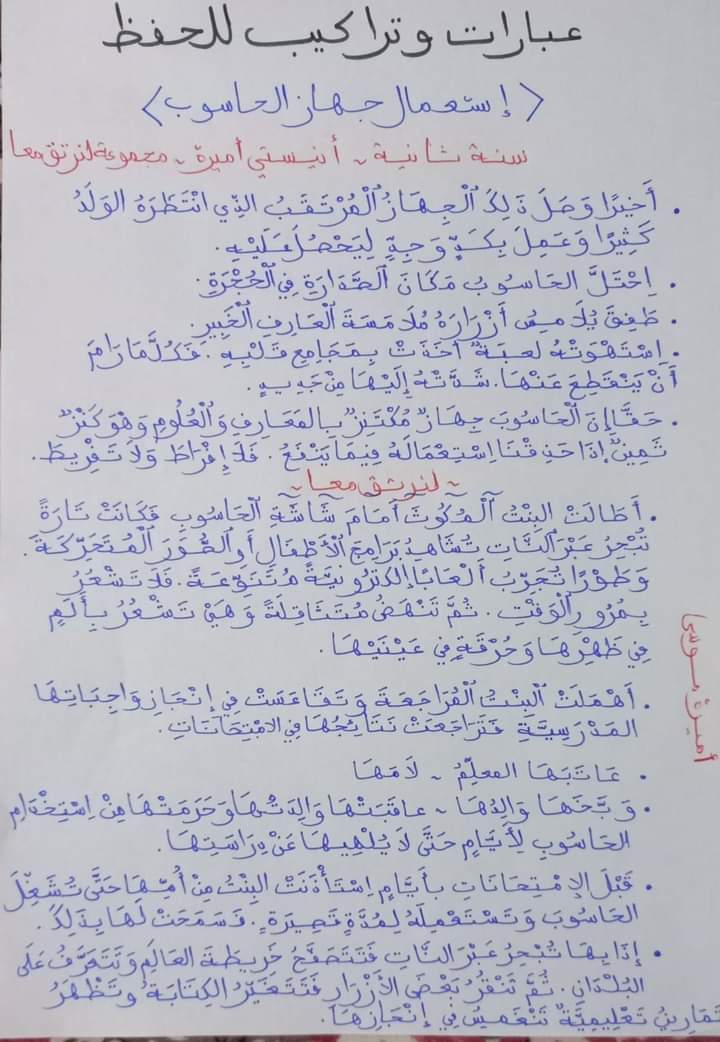 عبارات وتراكيب للحفظ
〈 إستعمال جهاز الحاسوب 〉
سنة ثانية ~ أنيستي أميرة ~ مجموعة لنرتق معا
. أَخِيرًا وَصَلَ ذَلِكَ الْجِهَازُ الْمُرْتَقَبُ الذِي انْتَظَرَهُ الوَلَدُ
كَثِيرًا وَعَمِلَ بِكَدٍّ وَجِدٍّ لِيَحْصُلَ عَلَيْهِ.
. اِحْتَلَّ الحَاسُوبُ مَكَانَ الصَّدَارَةِ فِي الْحُجْرَةِ.
. طَفِقَ يُلَامِسُ أَزْرَارَهُ مُلَامَسَةَ الْعَارِفِ الْخَبِيرِ.
. اِسْتَهْوَتْهُ لعبَةٌ أَخَذَتْ بِمَجَامِعِ قَلْبِهِ. فَكُلَّمَا رَامَ
أَنْ يَنْقَطِعَ عَنْهَا. شَدَّتْهُ إِلَيْهَا مِنْ جَدِيدٍ.
. حَقًّا إِنَّ الْحَاسُوبَ جِهَازٌ مُكْتَنِزٌ بِالمَعَارِفِ وَالْعُلُومِ وَهْوَ كَنْزٌ
ثَمِينٌ إِذَا حَذِقْنَا اِسْتِعْمَالَهُ فِيمَا يَنْفَعُ. فَلَا إِفْرَاطَ وَلَا تَفْرِيطَ.
~ لنرتق معا ~
. أَطَالَتْ البِنْتُ الْمُكُوثَ أَمَامَ شَاشَةِ الْحَاسُوبِ فَكَانَتْ تَارَةً
تُبْحِرُ عَبْرَ النَّاتِ تُشَاهِدُ بَرَامِجَ الْأَطْفَالِ أَوِ الصُّوَرَ الْمُتَحَرِّكَةَ.
وَطَوْرًا تُجَرِّبُ أَلْعَابًا إِلِكْتْرُونِيَّةً مُتَنَوِّعَةً. فَلَا تَشْعُرُ
بِمُرُورِ الْوَقْتِ. ثُمَّ تَنْهَضُ مُتَثَاقِلَةً وَهَيَ تَشْعُرُ بِأَلَمٍ
فِي ظَهْرِهَا وَحُرْقَةٍ فِي عَيْنَيْهَا.
. أَهْمَلَتْ الْبِنْتُ الْمُرَاجَعَةَ وَتَقَاعَسَتْ فِي إِنْجَازِ وَاجِبَاتِهَا
المَدْرَسِيَّةِ فَتَرَاجَعَتْ نَتَائِجُهَا فِي الامْتِحَانَاتِ.
. عَاتَبَهَا المعلِّمُ ~ لَامَهَا
. وَبَّخَهَا وَالِدُهَا ~ عاقَبَتْهَا وَالِدَتُهَا وَحَرَمَتْهَا مِنْ اِسْتِخْدَامِ
الحَاسُوبِ لِأَيَّامٍ حَتَّى لَا يُلْهِيهَا عَنْ دِرَاسَتِهَا.
. قَبْلَ الإِمْتِحَانَاتِ بِأَيَّامٍ اِسْتَأْذَنَتْ البِنْتُ مِنْ أُمِّهَا حَتَّى تُشَغِّلَ
الحَاسُوبَ وَتَسْتَعْمِلَهُ لِمُدَّةٍ قَصِيرَةٍ. فَسَمَحَتْ لَهَا بِذَلِكَ.
. إِذَا بِهَا تُبْحِرُ عَبْرَ النَّاتِ فَتَتَصَفَّحُ خَرِيطَةَ العَالَمِ وَتَتَعَرَّفُ عَلَى
البُلْدَانِ. ثُمَّ تَنْقُرُ بَعْضَ الأَزْرَارِ فَتَتَغَيَّرُ الكِتَابَةُ وَتَظْهَرُ
تَمَارِينُ تَعْلِيمِيَّةٌ تَنْغَمِسُ فِي إِنْجَازِهَا.
أميرة موسى